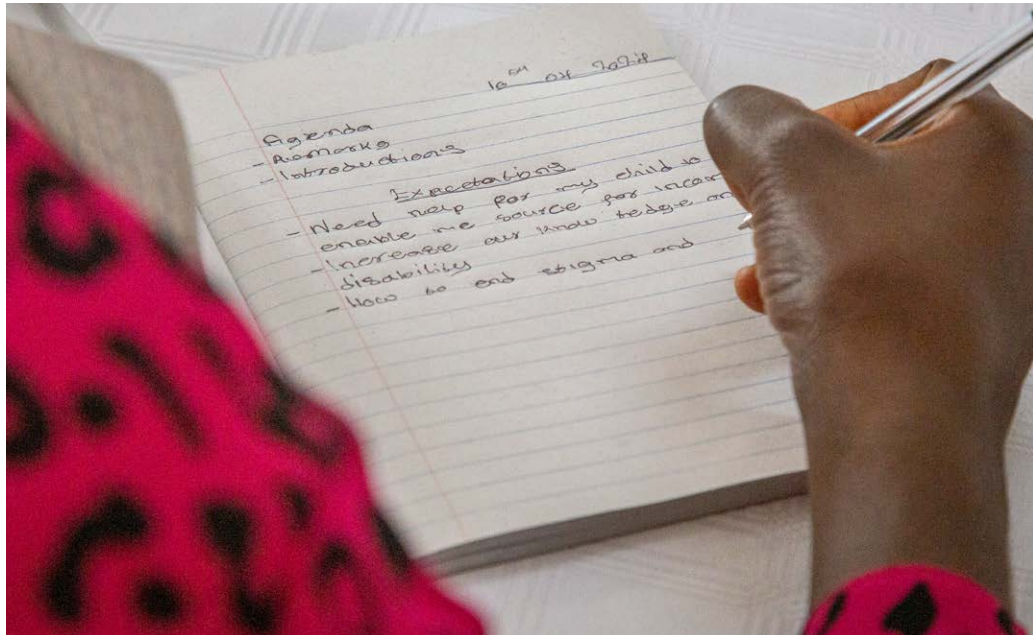 Agenda
- Remarks
- Introductions
Expectations
- Need help for my child to
enable me source for incom
- Increase our know ledge on
disability
- How to end stigma and